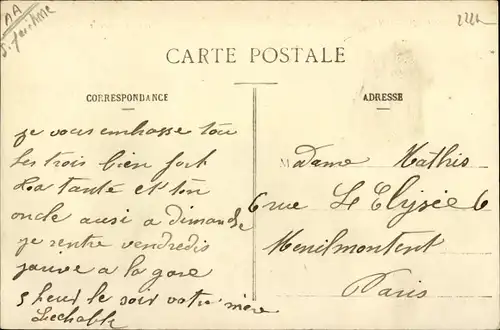 AA
2224
CARTE POSTALE
CORRESPONDANCE
ADRESSE
je vous embrasse tou
les trois bien fort
La tante et ton
oncle ausi a dimanche
je rentre vendredis
jarive a la gare
5 heur le soir votre mère
Lechable
Madame Mathis
6 rue L'Elysée 6
Menilmontent
Paris